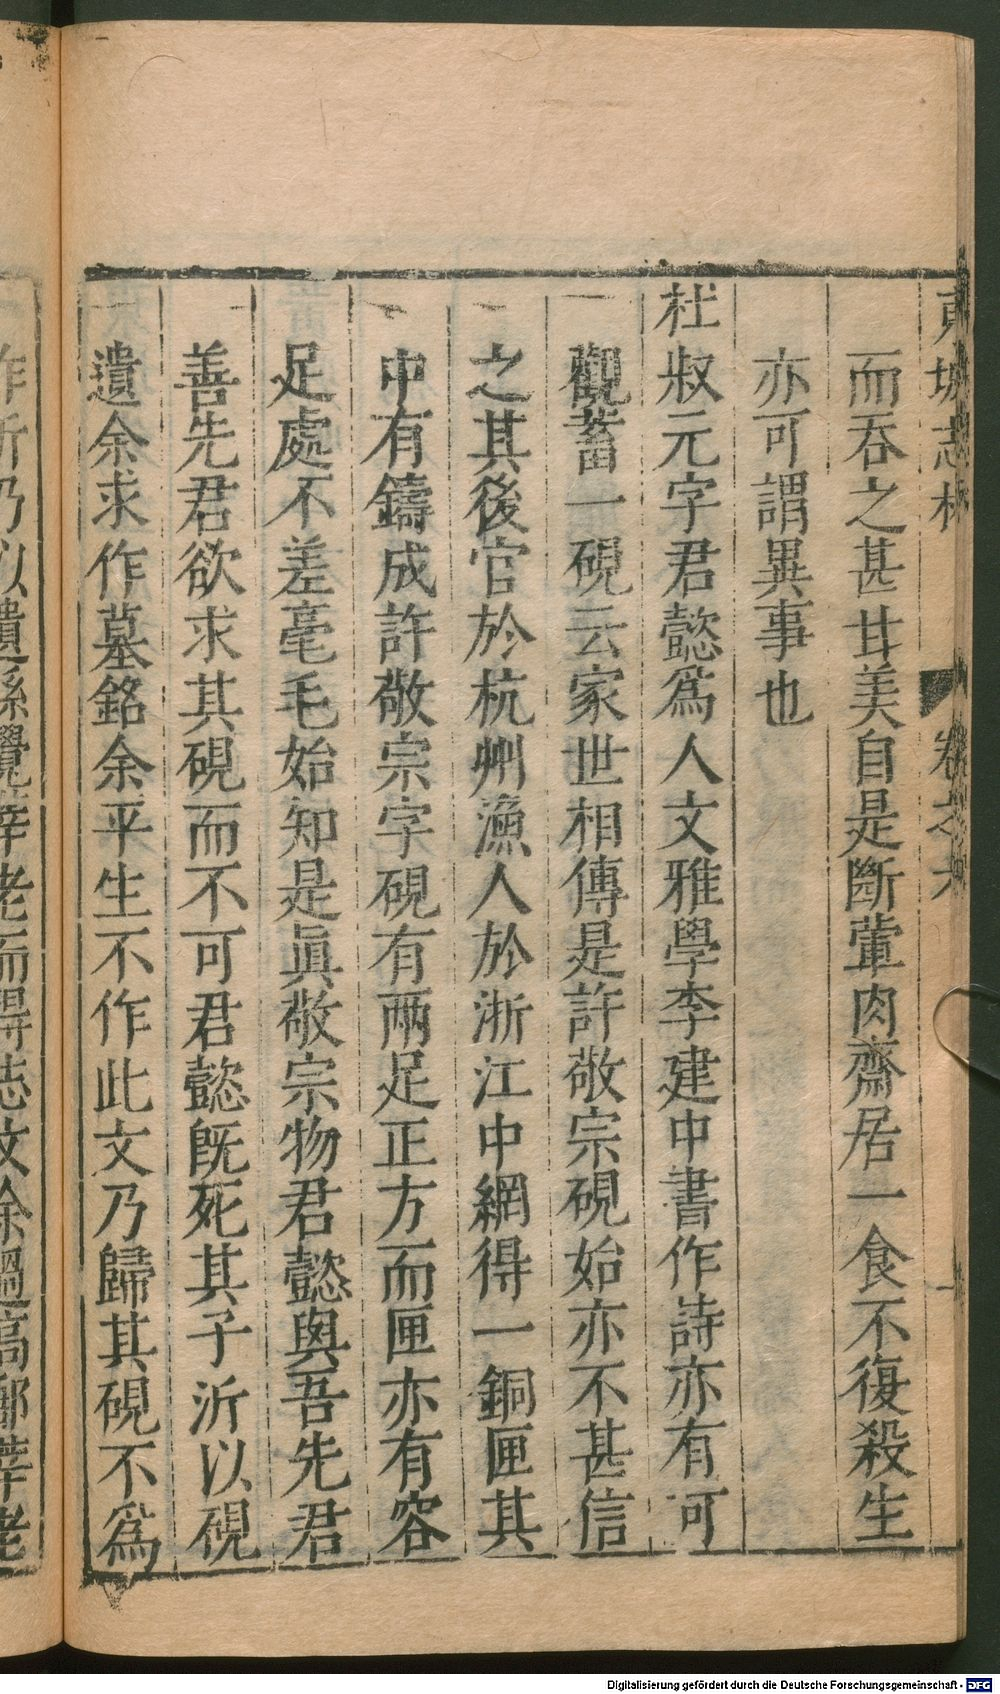 東坡志林 卷之六
而吞之甚甘美自是斷葷肉齋居一食不復殺生
亦可謂異事也
杜叔元字君懿為人文雅學李建中書作詩亦有可
觀蓄一硯云家世相傳是許敬宗硯始亦不甚信
之其後官於杭州漁人於浙江中網得一銅匣其
中有鑄成許敬宗字硯有兩足正方而匣亦有容
足處不差毫毛始知是眞敬宗物君懿與吾先君
善先君欲求其硯而不可君懿旣死其子沂以硯
遺余求作墓銘余平生不作此文乃歸其硯不為
作沂乃以遺孫覺莘老而得志文余過高郵莘老
Digitalisierung gefördert durch die Deutsche Forschungsgemeinschaft - DFG